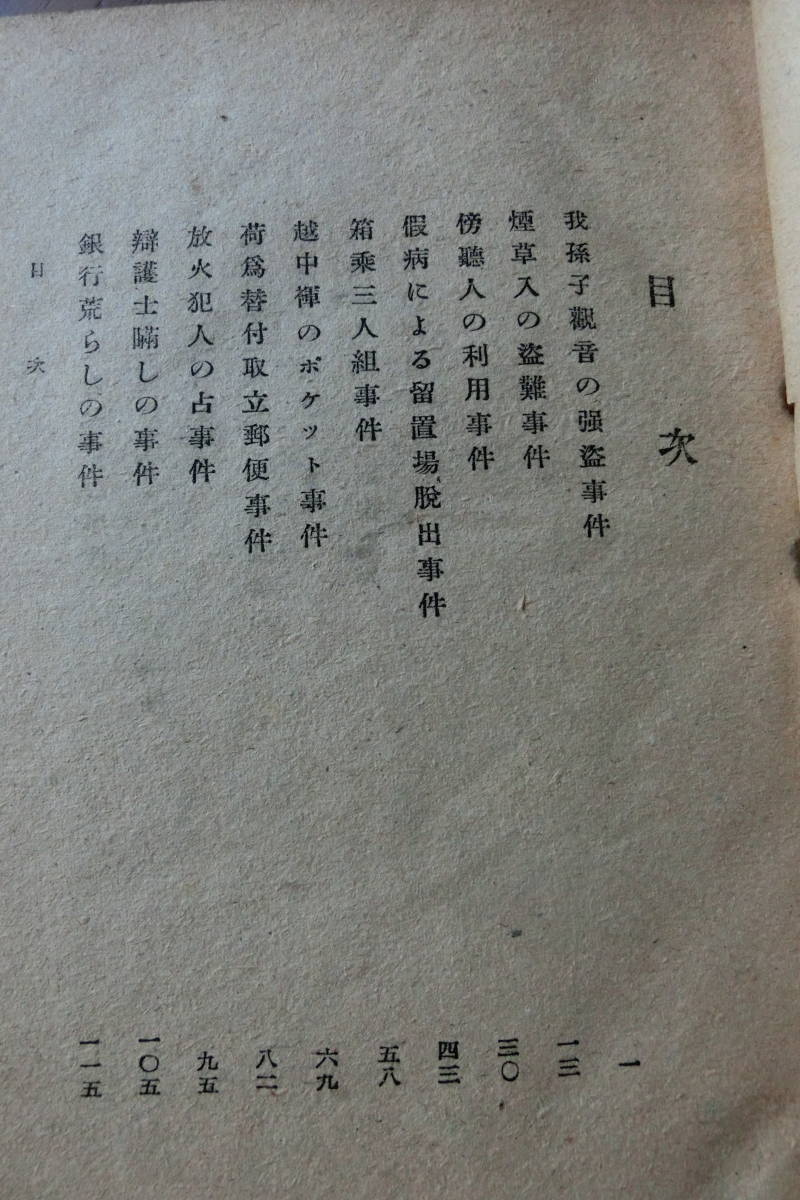 目次
我孫子觀音の强盜事件 一
煙草入の盜難事件 一三
傍聽人の利用事件 三〇
假病による留置場脫出事件 四三
箱乘三人組事件 五八
越中褌のポケット事件 六九
荷爲替付取立郵便事件 八二
放火犯人の占事件 九五
辯護士瞞しの事件 一〇五
銀行荒らしの事件 一一五
目次